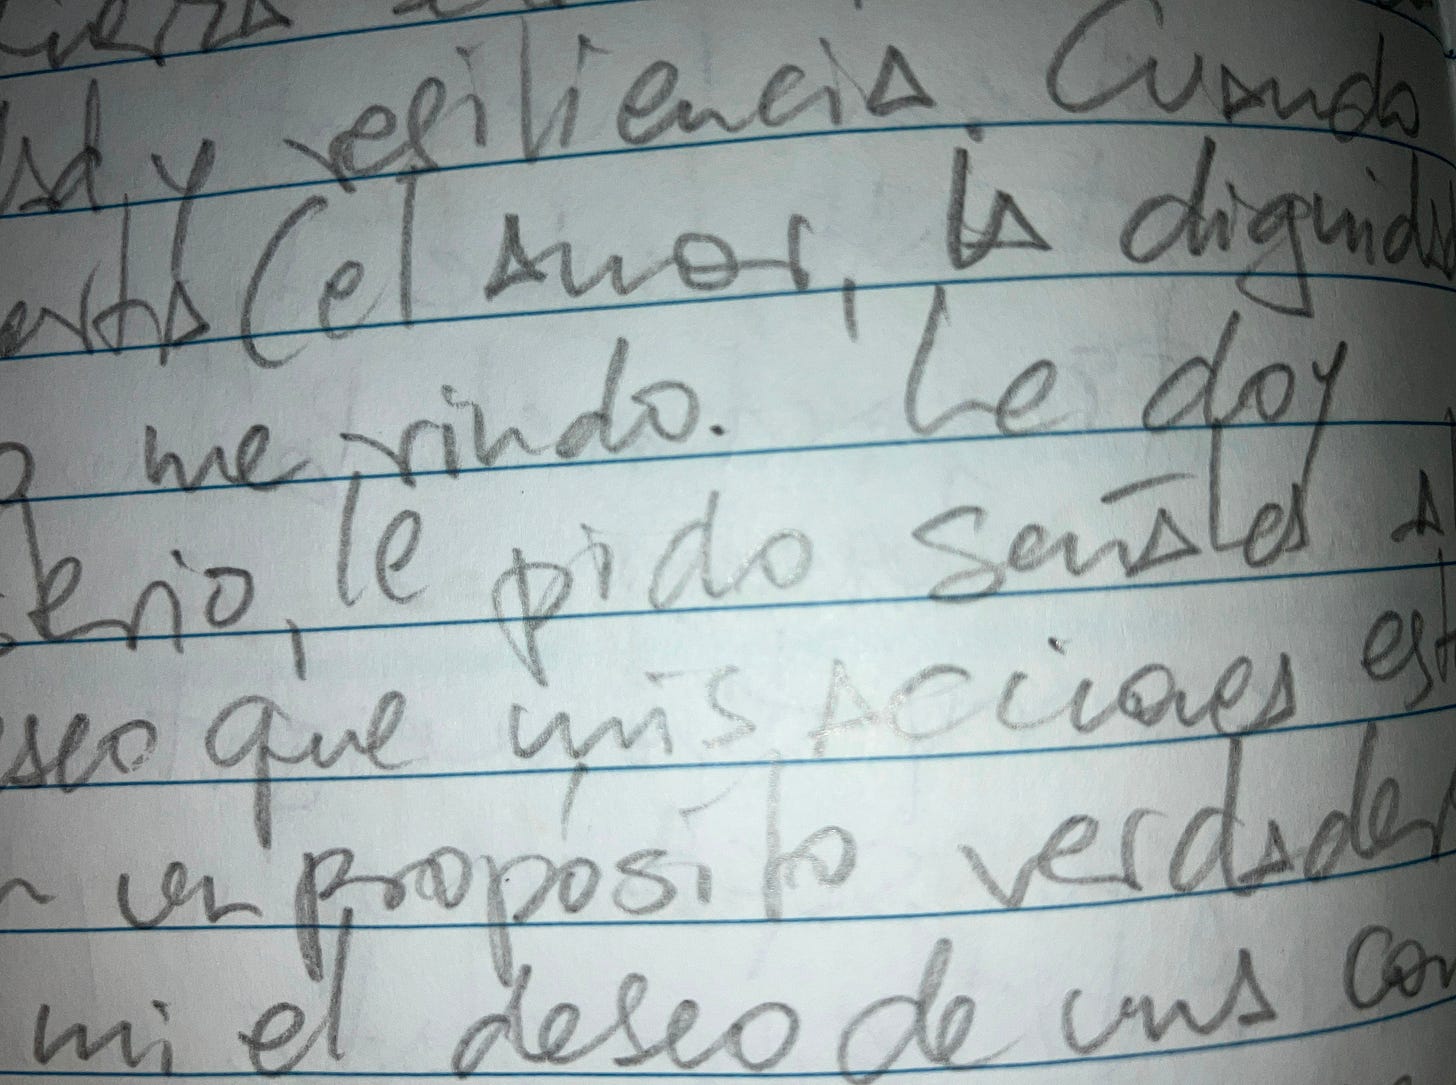 y resiliencia. Cuando
(el amor, la dignida
me rindo. Le doy
le pido señales a
seo que mis acciones est
un propósito verdader
mi el deseo de una con